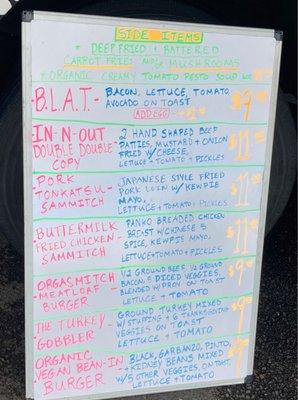 SIDE ITEMS
* DEEP FRIED + BATTERED
CARROT FRIES MUSHROOMS
* ORGANIC CREAMY TOMATO PESTO SOUP
B.L.A.T. - BACON, LETTUCE, TOMATO,
AVOCADO ON TOAST
ADD EGG
$9
IN-N-OUT
DOUBLE DOUBLE
COPY
2 HAND SHAPED BEEF
PATTIES, MUSTARD + ONION
FRIED W/CHEESE,
LETTUCE + TOMATO + PICKLES
$11
PORK
TONKATSU
SAMMITCH
JAPANESE STYLE FRIED
PORK LOIN W/KEWPIE
MAYO,
LETTUCE + TOMATO + PICKLES
$11
BUTTERMILK
FRIED CHICKEN
SAMMITCH
PANKO BREADED CHICKEN
BREAST W/CHINESE 5
SPICE, KEWPIE MAYO,
LETTUCE + TOMATO + PICKLES
$11
ORGASMITCH
-MEATLOAF-
BURGER
1/2 GROUND BEEF, 1/2 GROUND
BACON & DICED VEGGIES,
BLENDED W/PROV ON TOAST
LETTUCE + TOMATO
$9
THE TURKEY
GOBBLER
GROUND TURKEY MIXED
W/STUFFING + 6 THANKSGIVING
VEGGIES ON TOAST
LETTUCE + TOMATO
$9
ORGANIC
VEGAN BEAN-IN
BURGER
BLACK, GARBANZO, PINTO,
+ KIDNEY BEANS MIXED
W/5 OTHER VEGGIES, ON TOAST,
LETTUCE + TOMATO